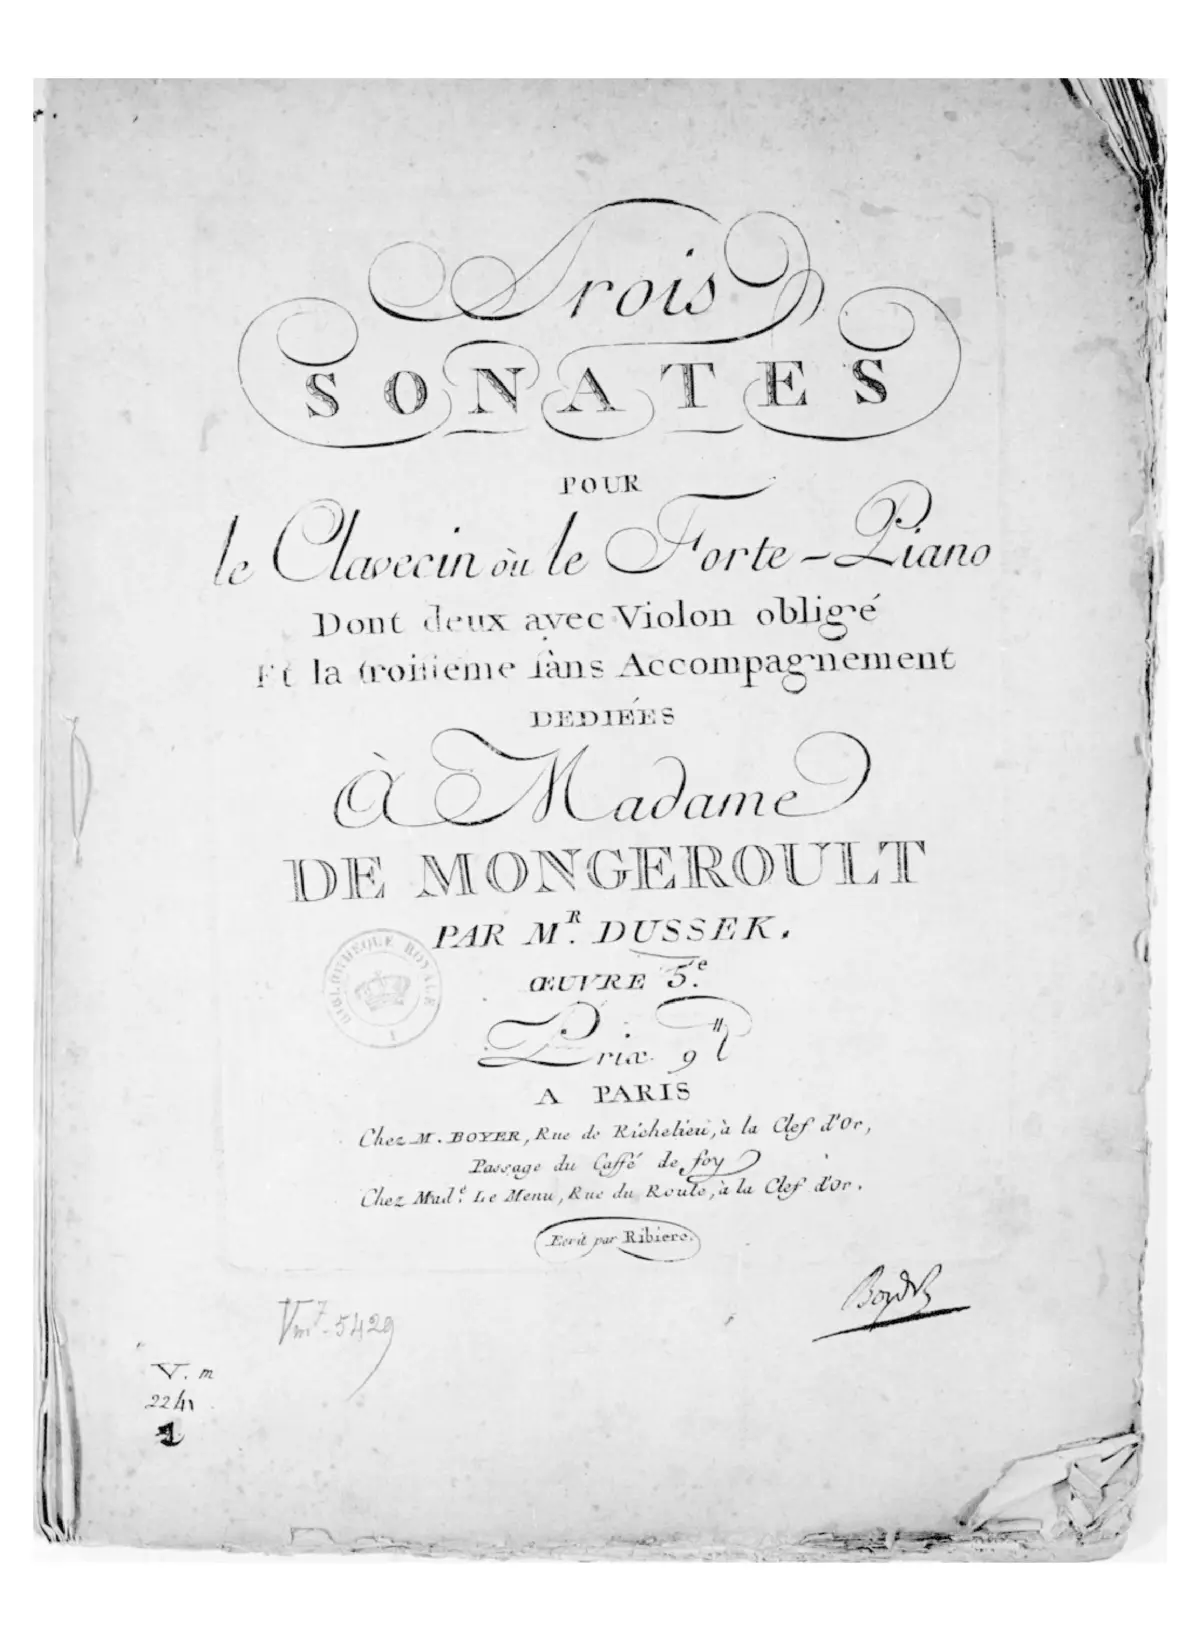 Trois
SONATES
POUR
le Clavecin où le Forte-Piano
Dont deux avec Violon obligé
Et la troisieme sàns Accompagnement
DEDIÉES
À Madame
DE MONGEROULT
PAR M.R DUSSEK.
BIBLIOTHEQUE ROYALE
ŒUVRE 5.e
Prix. 9tt
A PARIS
Chez M. BOYER, Rue de Richelieu, à la Clef d'Or,
Passage du Caffé de foy
Chez Mad.e Le Menu, Rue du Roule, à la Clef d'Or.
Ecrit par Ribiere.
Vm7. 5429
V. m
2241
1